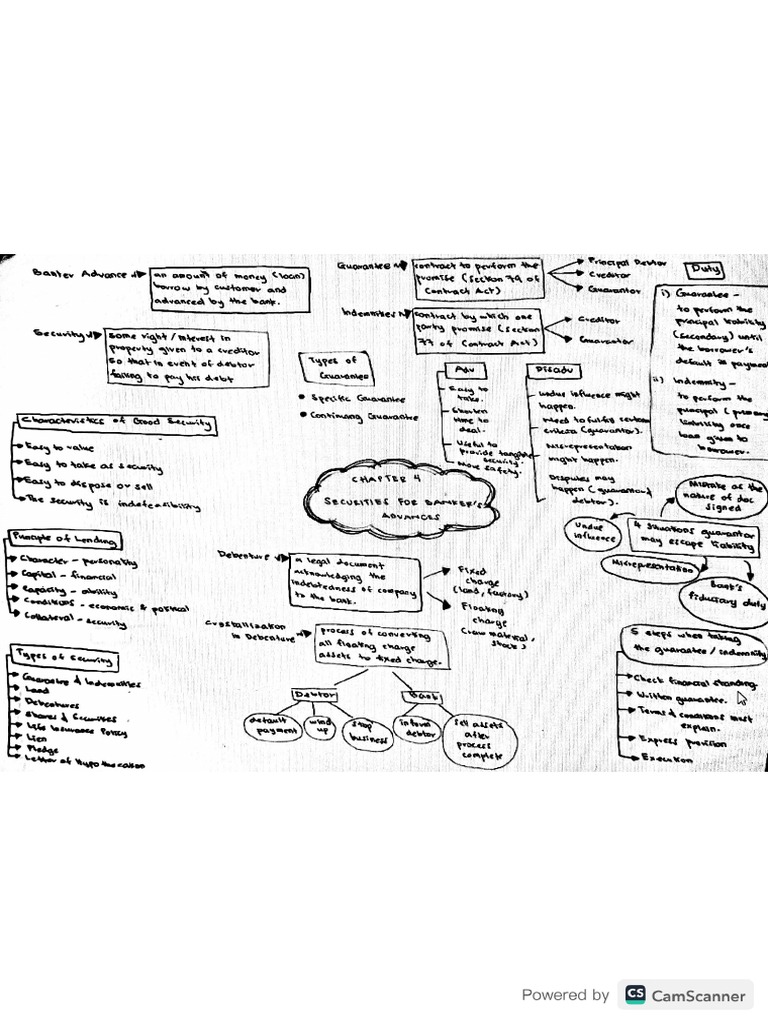 Banker Advance
an amount of money (loan)
borrow by customer and
advanced by the bank.
Security
some right / interest in
property given to a creditor
so that in event of debtor
failing to pay his debt
Characteristics of Good Security
Easy to value
Easy to take as security
Easy to dispose or sell
The security is indefeasibility
Principle of Lending
Character - personality
Capital - financial
Capacity - ability
Conditions - economic & political
Collateral - security
Types of Security
Guarantee & Indemnities
Land
Debentures
Shares & Securities
Life Insurance Policy
Lien
Pledge
Letter of Hypothecation
Guarantee
contract to perform the
promise (section 79 of
Contract Act)
Principal Debtor
Creditor
Guarantor
Indemnities
contract by which one
party promise (section
77 of Contract Act)
Creditor
Guarantor
Types of
Guarantee
Specific Guarantee
Continuing Guarantee
Adv
Easy to
take.
Shorten
time to
deal.
Useful to
provide tangible
security.
More safety.
Disadv
undue influence might
happen.
Need to fulfill certain
criteria (guarantor).
Misrepresentation
might happen.
Disputes may
happen (guarantor &
debtor).
CHAPTER 4
SECURITIES FOR BANKER'S
ADVANCES
Debenture
a legal document
acknowledging the
indebtedness of company
to the bank.
Fixed
charge
(land, factory)
Floating
charge
(raw material,
stock)
Crystallisation
in Debenture
process of converting
all floating charge
assets to fixed charge.
Debtor
default
payment
wind
up
stop
business
Bank
inform
debtor
sell assets
after
process
complete
Duty
i) Guarantee -
to perform the
principal liability
(secondary) until
the borrower's
default in payment
ii) Indemnity -
to perform the
principal (primary
liability once
loan given to
borrower.
4 situations guarantor
may escape liability
Mistake as the
nature of doc
signed
Undue
influence
Misrepresentation
Bank's
fiduciary duty
5 steps when taking
the guarantee / indemnity
Check financial standing.
Written guarantee.
Terms & conditions must
explain.
Express provision
Execution
Powered by CS CamScanner